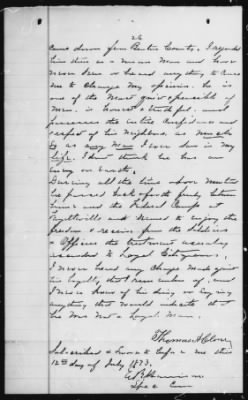 26
Came down from Benton County. I regarded
him then as a Union Man and have
never seen or heard anything to cause
me to change my opinion. He is
one of the most quiet & peaceable of
men, is honest & truthful, and
possesses the entire confidence and
respect of his neighbors, as much
so as any man I ever saw in my
life. I dont think he has an
enemy on earth.
During all the time above mentioned
he passed back & forth freely between
home and the Federal Camps at
Fayetteville and seemed to enjoy the
freedom & receive from the Soldiers
& Officers the treatment usually
accorded to Loyal Citizens.
I never heard any charge made against
his loyalty, that I remember of, and
I never knew of his doing or saying
anything that would indicate that
he was not a Loyal Man.
Thomas
Subscribed & Sworn to before me this
12th day of July 1873.
Spec Com